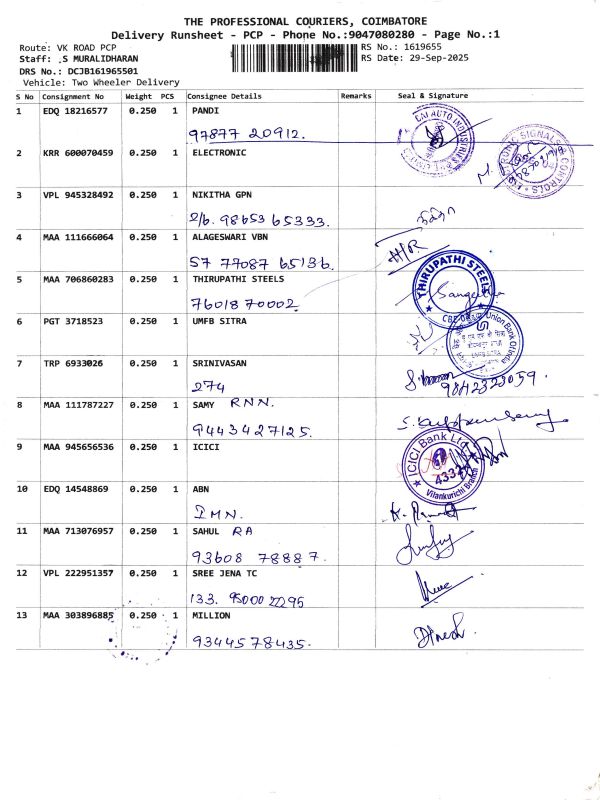 THE PROFESSIONAL COURIERS, COIMBATORE
Delivery Runsheet - PCP - Phone No.:9047080280 - Page No.:1
Route: VK ROAD PCP
RS No.: 1619655
Staff: ,S MURALIDHARAN
RS Date: 29-Sep-2025
DRS No.: DCJB161965501
Vehicle: Two Wheeler Delivery
S No Consignment No Weight PCS Consignee Details Remarks Seal & Signature
1 EDQ 18216577 0.250 1 PANDI
97877 20912.
SAI AUTO INDUSTRIES
2 KRR 600070459 0.250 1 ELECTRONIC
SIGNALS & CONTROLS
3 VPL 945328492 0.250 1 NIKITHA GPN
2/6. 98653 65333.
4 MAA 111666064 0.250 1 ALAGESWARI VBN
57 77087 65136.
H/R
5 MAA 706860283 1 0.250 THIRUPATHI STEELS
7601870002
THIRUPATHI STEELS
Sangeetha
6 PGT 3718523 0.250 1 UMFB SITRA
Union Bank Of India
UMFB SITRA
7 TRP 6933026 0.250 1 SRINIVASAN
274
9842323059.
8 MAA 111787227 0.250 1 SAMY RNN.
9443427125.
9 MAA 945656536 0.250 1 ICICI
ICICI Bank Ltd
Vilankurichi Branch
10 EDQ 14548869 0.250 1 ABN
IMN.
11 MAA 713076957 0.250 1 SAHUL RA
93608 78887.
12 VPL 222951357 0.250 1 SREE JENA TC
133. 95000 2295
13 MAA 303896885 0.250 1 MILLION
9344578435.
Dinesh.